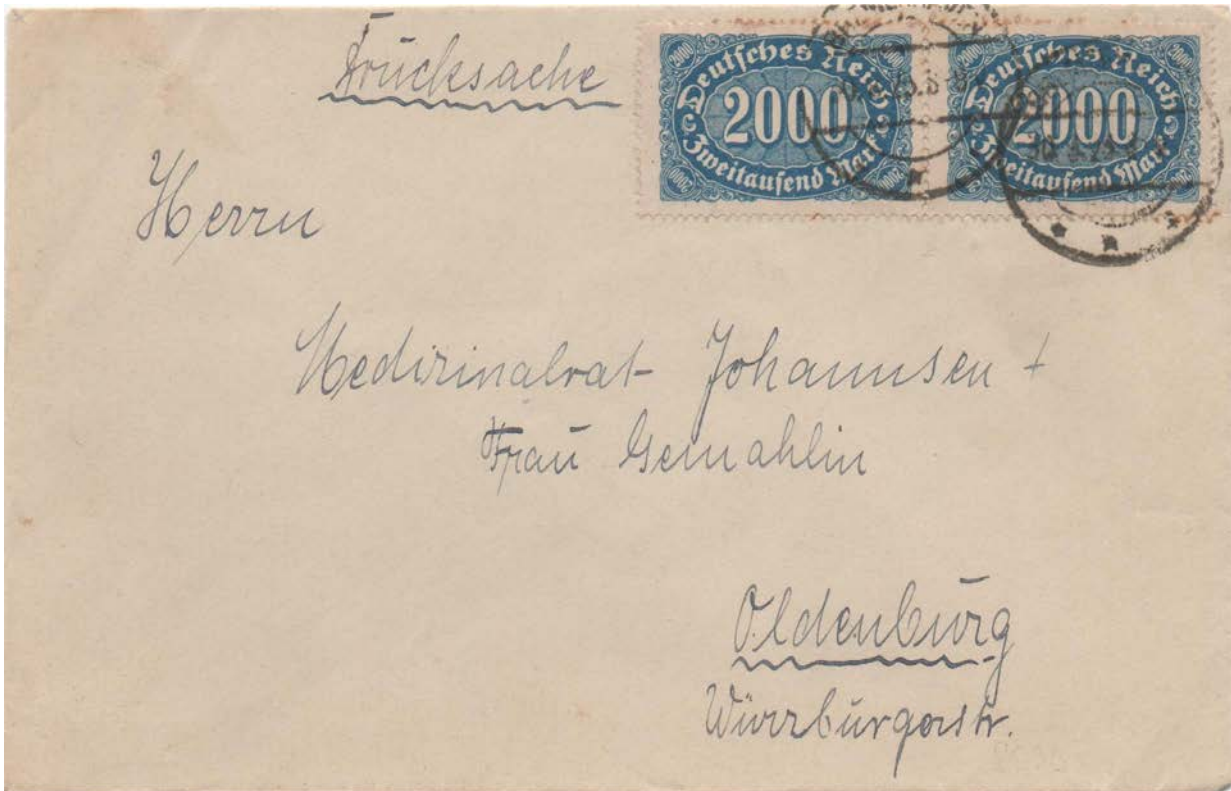 Drucksache
2000 2000
Deutsches Reich
2000
Zweitausend Mark
2000 2000
2000 2000
Deutsches Reich
2000
Zweitausend Mark
2000 2000
Herrn
Medizinalrat Johannsen +
Frau Gemahlin
Oldenburg
Würzburgerstr.